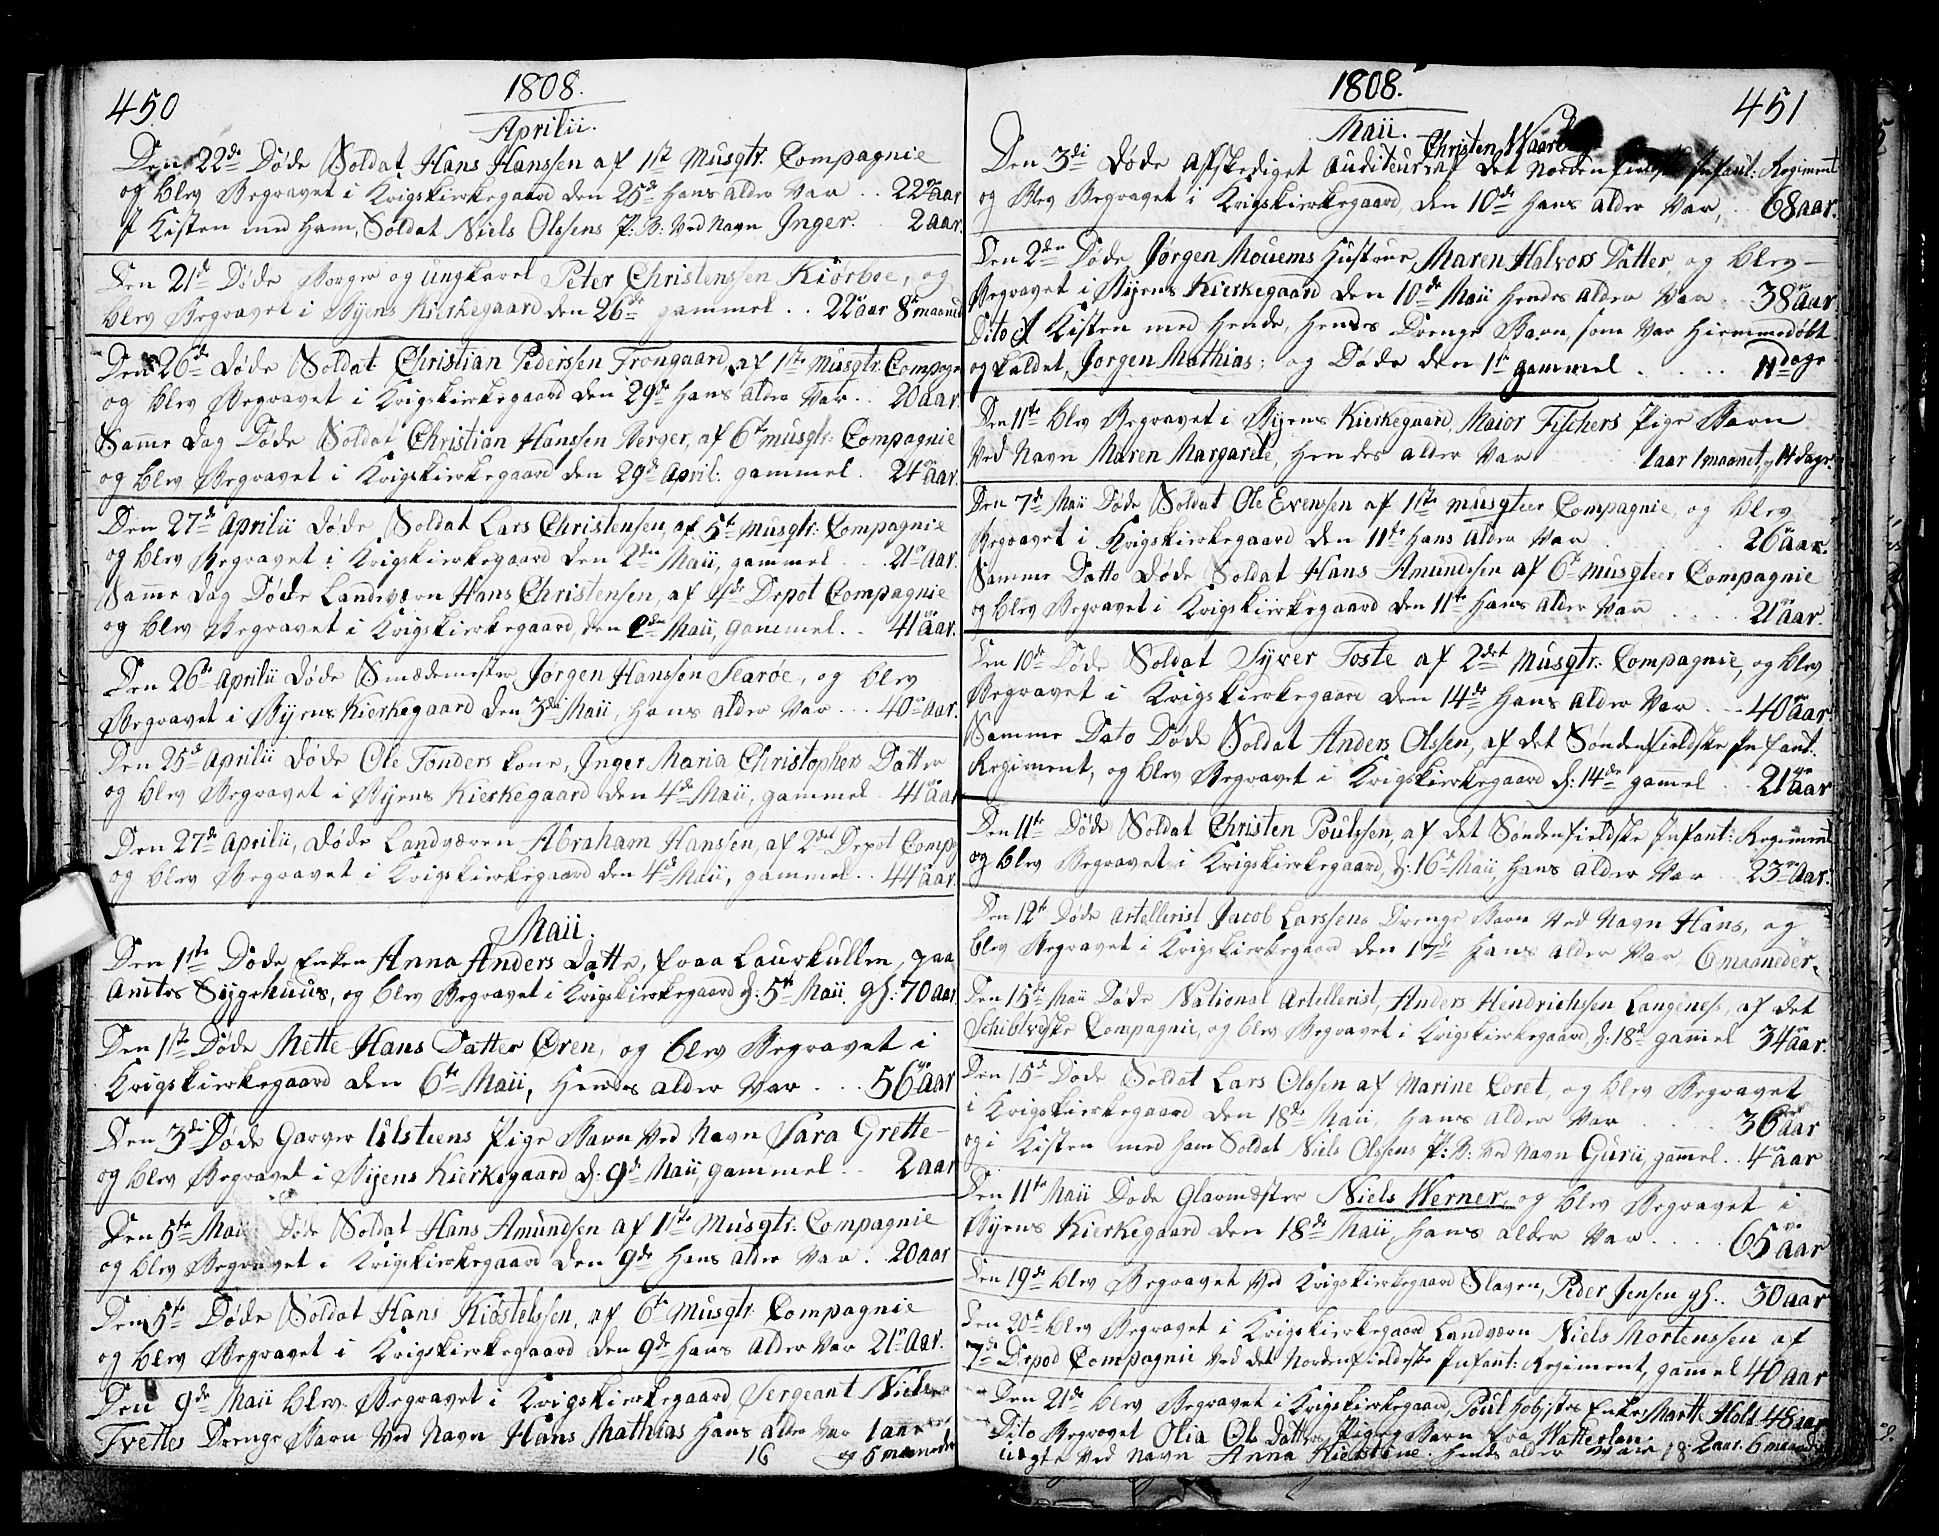 450
1808.
Aprilii.
Den 22de Døde Soldat Hans Hanssen af 1st Musqtr. Compagnie
og blev Begravet i Krigskierkegaard den 25de Hans alder var . . 22 aar
I Kisten med Ham, Soldat Niels Olssens P: B: ved Navn Inger. 2 aar.
Den 21de Døde Borger og ungkarl Peter Christenssen Kiörboe, og
blev Begravet i Byens Kierkegaard den 26de gammel . . 22 aar 8te maaned
Den 26de Døde Soldat Christian Pederssen Trongaard, af 1ste Musqtr: Compagn
og blev Begravet i Krigskierkegaard den 29de Hans alder var . . 20 aar
Samme dag Døde Soldat Christian Hanssen Berger, af 6te musqtr: Compagnie
og blev Begravet i Krigskierkegaard den 29de April: gammel . 24 aar.
Den 27de Aprilii Døde Soldat Lars Christensen, af 5te musqtr: Compagnie
og blev Begravet i Krigskierkegaard den 2den Maii, gammel . . . 21 aar.
Samme dag Døde Landværn Hans Christensen, af 4de Depot Compagnie
og blev Begravet i Krigskierkegaard, den 2den Maii, gammel . . 41 aar.
Den 26de Aprilii Døde Smædemester Jørgen Hanssen Searöe, og blev
Begravet i Byens Kierkegaard den 3di Maii, Hans alder var . . . 40 aar.
Den 25de Aprilii Døde Ole Tonders kone, Inger Maria Christophers Datter
og blev Begravet i Byens Kierkegaard den 4de Maii, gammel . 41 aar
Den 27de Aprilii, Døde Landværen Abraham Hanssen, af 2det Depot Comp
og blev Begravet i Krigskierkegaard den 4de Maii, gammel . . 44 aar.
Maii.
Den 1ste Døde Enken Anna Anders Datte, fraa Laurkullen, paa
Amtes Sygehuus, og blev Begravet i Krigskierkegaard d: 5te Maii, gl: 70 aar
Den 1ste Døde Mette Hans Datter Ören, og blev Begravet i
Krigskierkegaard den 6te Maii, Hendes alder var . . . 56 aar
Den 3di Døde Garver Ulsteens Pige Barn ved Navn Sara Grette-
og blev Begravet i Byens Kierkegaard d: 9de Maii, gammel . . 2 aar
Den 5te Maii Døde Soldat Hans Amundsen af 1ste Musqtr: Compagnie
og blev Begravet i Krigskierkegaard den 9de Hans alder var . 20 aar
Den 5te Døde Soldat Hans Kiöstelssen, af 6te Musqtr: Compagnie
og blev Begravet i Krigskierkegaard den 9de Hans alder var 21 aar.
Den 9de Maii blev Begravet i Krigskierkegaard Sergeant Niels
Tvettes Drenge Barn ved Navn Hans Mathias Hans alder var 1 aar
16 og 6 maaneder
451
1808.
Maii.
Christen
Den 3di Døde afskediget Auditeur af det Nordenfieldske Infant: Regiment
og Blev Begravet i Krigskierkegaard, den 10de Hans alder var, . . 68 aar.
Den 2den Døde Jørgen Mouems Hustrue, Maren Halvors Datter, og blev-
Begravet i Byens Kierkegaard den 10de Maii Hendes alder var . . 38 aar
Dito I Kisten med Hende, Hendes Drenge Barn, som var Hiemmedøbt
og kaldet, Jørgen Mathias: og Døde den 1ste gammel . . . . . 11 dage
Den 11te blev Begravet i Byens Kierkegaard, Maior Fischers Pige Barn
Ved Navn Maren Margarete, Hendes alder var 1 aar 1 maanet og 14 dage.
Den 7de Maii Døde Soldat Ole Evensen af 1ste musqteer Compagnie, og blev
Begravet i Krigskierkegaard den 11te Hans alder var . . . 26 aar.
Samme Datto Døde Soldat Hans Amundssen af 6te musqteer Compagnie
og blev Begravet i Krigskierkegaard den 11te Hans alder var . . . . 21 aar.
Den 10de Døde Soldat Syver Foste af 2det Musqtr: Compagnie, og blev
Begravet i Krigskierkegaard den 14de Hans alder var . . 40 aar
Samme Dato Døde Soldat Anders Olssen, af det Söndenfieldske Infant.
Regiment, og blev Begravet i Krigskierkegaard d: 14de gamel . . 21 aar
Den 11te Døde Soldat Christen Poulssen, af det Söndenfieldske Infant: Regiment
og blev Begravet i Krigskierkegaard, d: 16de Maii, Hans alder var . . 23 aar.
Den 12te Døde Artellerist Jacob Larssens Drenge Barn ved Navn Hans, og
blev Begravet i Krigskierkegaard den 17de Hans alder var 6 maaneder.
Den 15te Maii Døde National Artellerist, Anders Hendrichsen Langeness, af det
Schibtvedske Compagnie, og blev Begravet i Krigskierkegaard, d: 18de gammel 34 aar.
Den 15de Døde Soldat Lars Olssen af Marine Coret, og blev Begravet
i Krigskierkegaard den 18de Maii, Hans alder var . . . . . 36 aar
og i Kisten med ham Soldat Niels Olssens P: B: ved Navn Gurii, gammel . . 4 aar
Den 11te Maii Døde Glarmester Niels Werner, og blev Begravet i
Byens Kierkegaard den 18de Maii, Hans alder var . . . . 65 aar
Den 19de blev Begravet ved Krigskierkegaard Slaven, Peder Jensen gl: . 30 aar
Den 20de blev Begravet i Krigskierkegaard Landværn Niels Mortenssen af
7de Depod Compagnie ved det Nordenfieldske Infant: Regiment, gammel 40 aar
Den 21de blev Begravet i Krigskierkegaard, Poul Enke, Marthe Holt 48 aar
Dito Begravet Olia Ols Datters Pige Barn fra
uægte ved Navn Anna Kierstine: Hendes alder var 2 aar. 6 maaneder